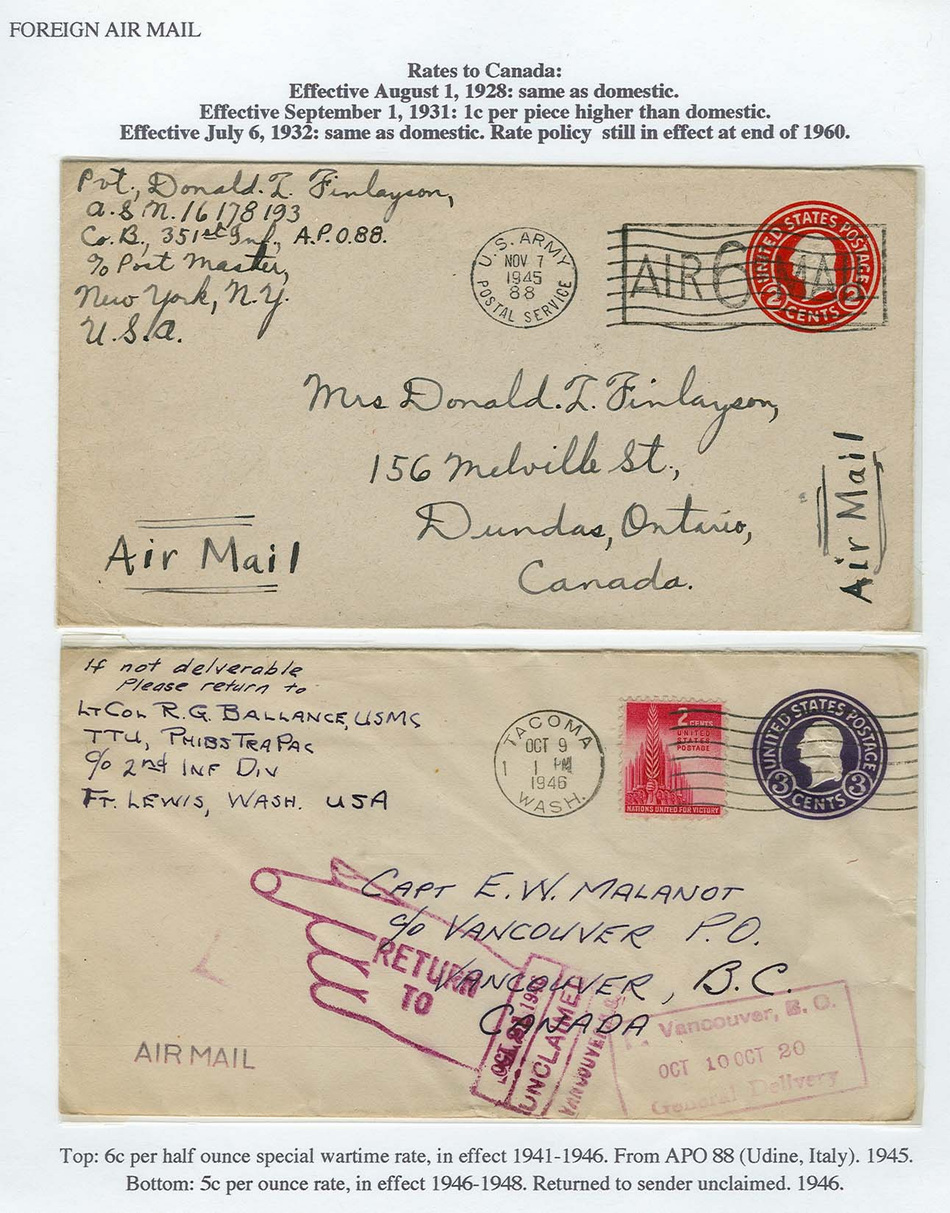 FOREIGN AIR MAIL
Rates to Canada:
Effective August 1, 1928: same as domestic.
Effective September 1, 1931: 1c per piece higher than domestic.
Effective July 6, 1932: same as domestic. Rate policy still in effect at end of 1960.
Pvt., Donald. T. Finlayson,
A.S.N. 16178193
Co. B., 351st Inf., A.P.O. 88.
c/o Post Master,
New York, N.Y.
U.S.A.
U.S. ARMY
NOV 7
1945
88
POSTAL SERVICE
AIR 6 MAIL
UNITED STATES POSTAGE
2 CENTS 2
Mrs Donald. T. Finlayson,
156 Melville St.,
Dundas, Ontario,
Canada.
Air Mail
Air Mail
If not delverable
Please return to
Lt Col R.G. BALLANCE, USMC
TTU, PHIBSTRAPAC
c/o 2nd INF DIV
FT. LEWIS, WASH. USA
TACOMA
OCT 9
1 PM
1946
WASH.
2 CENTS
UNITED
STATES
POSTAGE
NATIONS UNITED FOR VICTORY
UNITED STATES POSTAGE
3 CENTS 3
CAPT E.W. MALANOT
c/o VANCOUVER P.O.
VANCOUVER, B.C.
CANADA
RETURN
TO
UNCLAIMED
VANCOUVER
Vancouver, B.C.
OCT 10 OCT 20
General Delivery
AIR MAIL
Top: 6c per half ounce special wartime rate, in effect 1941-1946. From APO 88 (Udine, Italy). 1945.
Bottom: 5c per ounce rate, in effect 1946-1948. Returned to sender unclaimed. 1946.